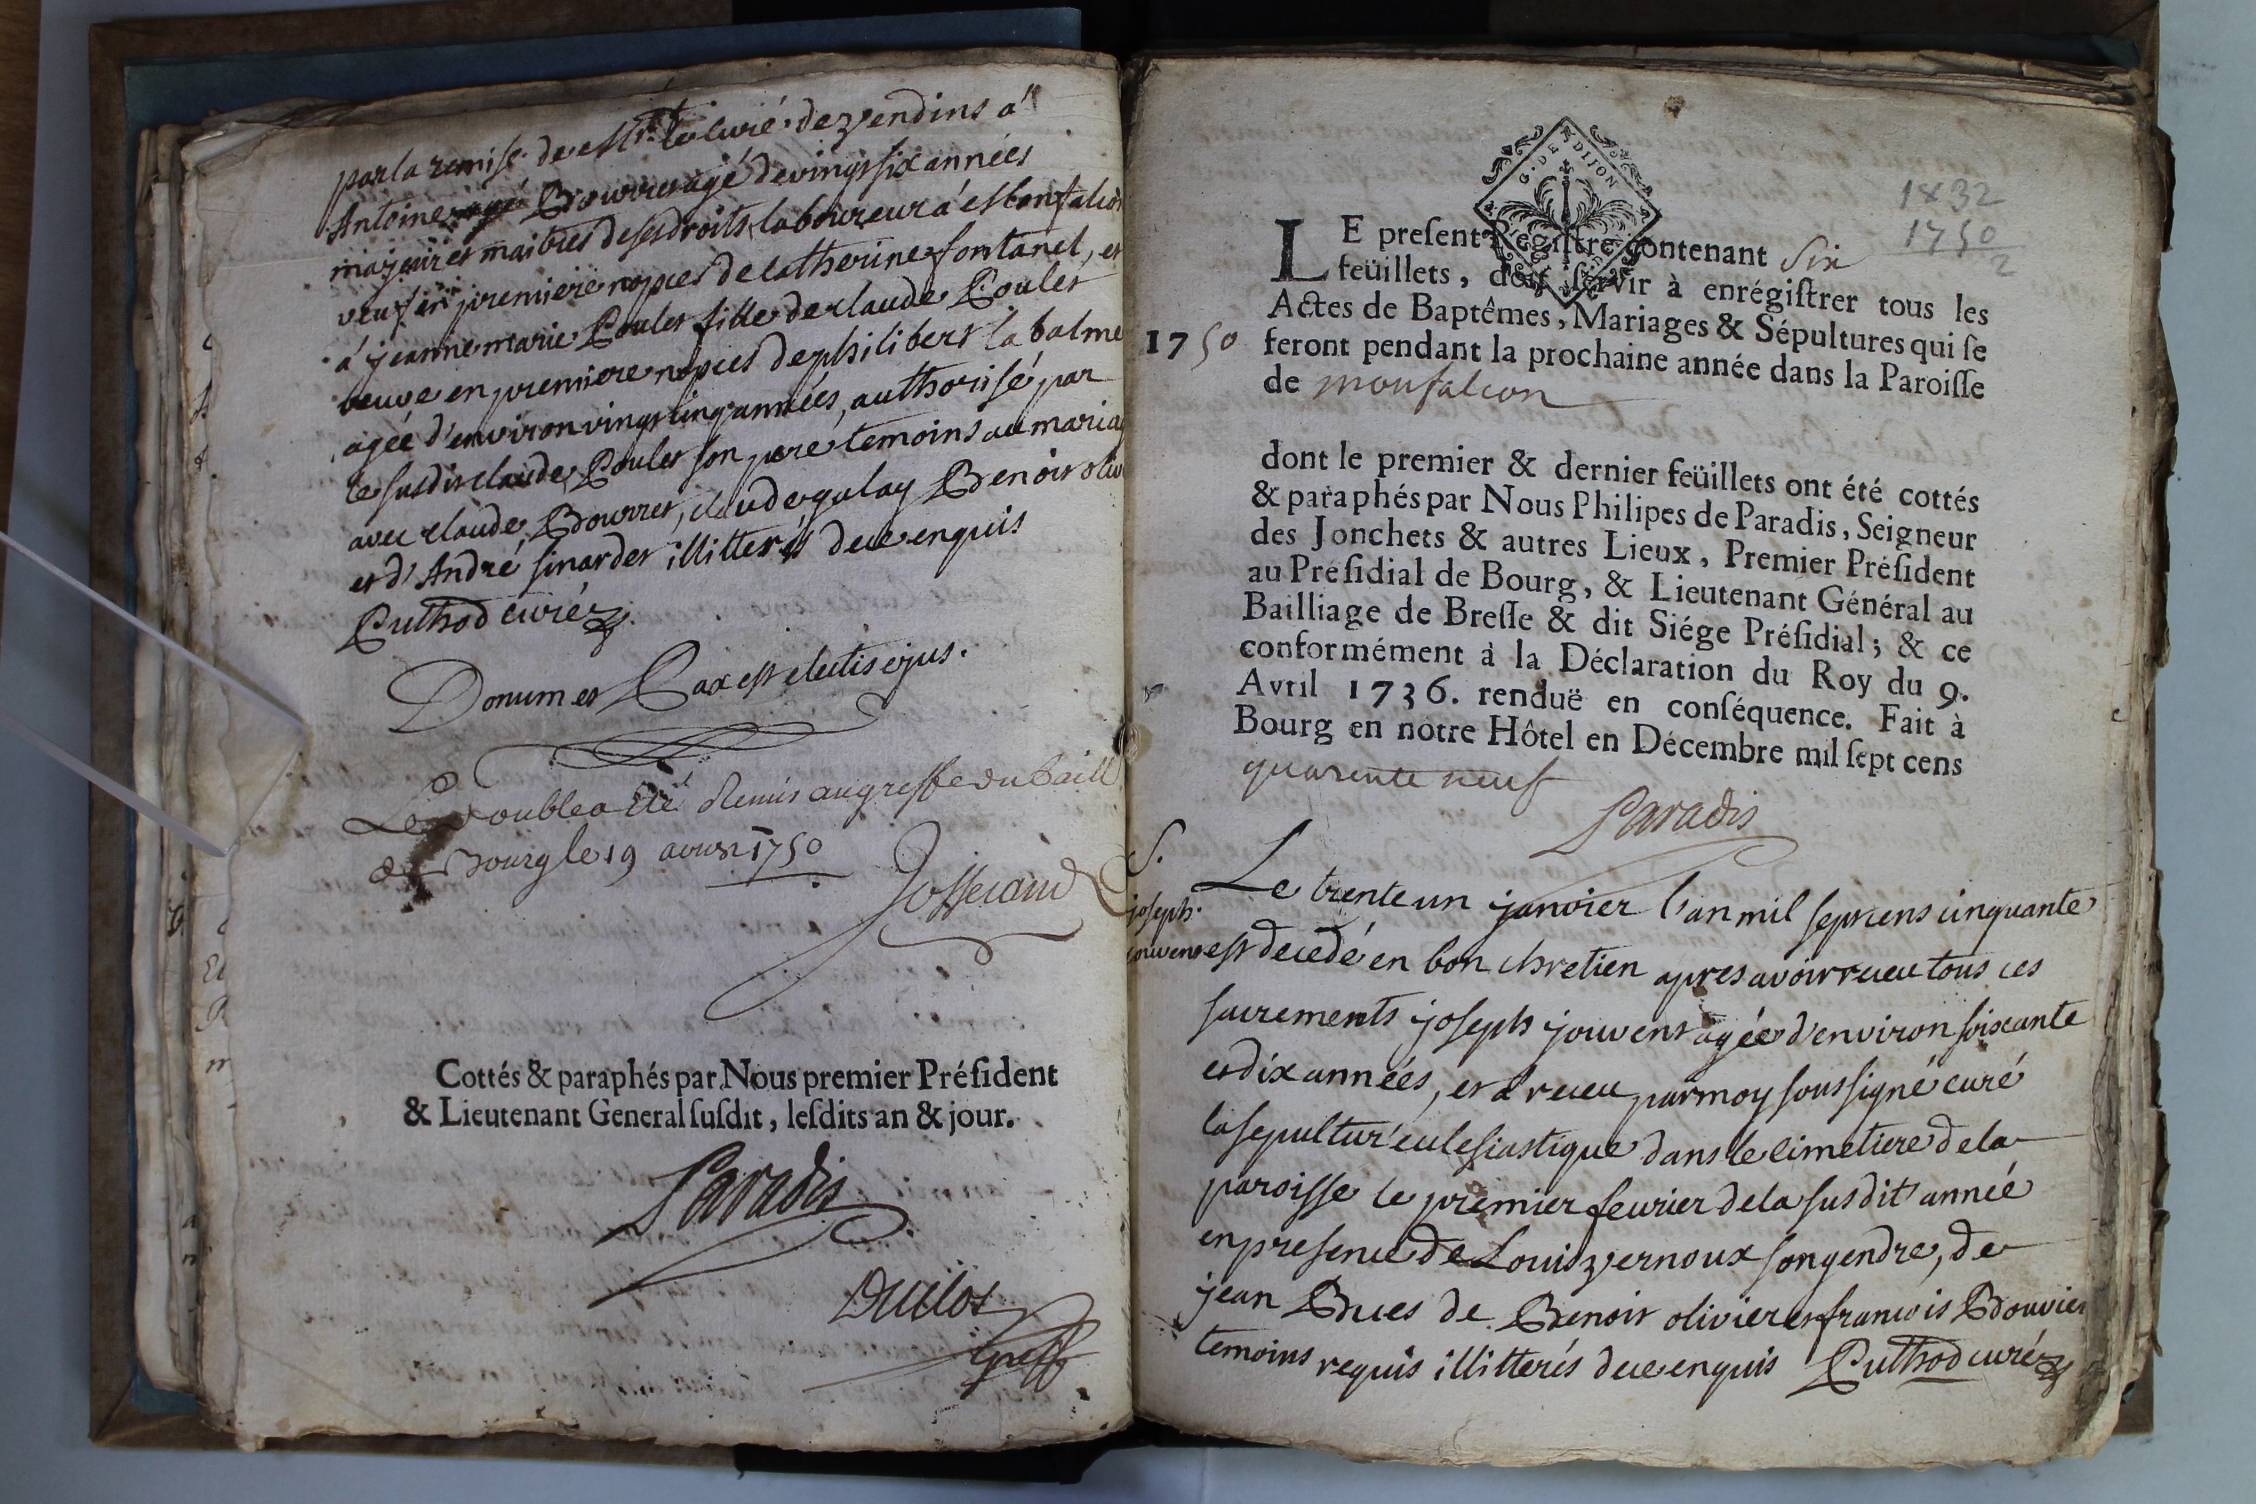 par la remise de Mr. le Curé de Vendins à
Antoine Bourret agé de vingt six années
majeur et maitres de ses droits laboureur à Monfalcon
veuf en premiere nopces de Catherine fontanel, et
à jeanne marie Poulet fille de claude Poulet
veuve en premiere nopces de philibert la balme
agée d'environ vingt cinq années, authorisé par
le susdit claude Poulet son pere temoins au mariag
avec claude Bourret, claude gulay Benoit oliv
et d'André sinardet illitterés de ce enquis
Puthod curé
Donum et Pax est electis ejus.
Le double a été Remis au greffe du baill
de Bourg le 19 avril 1750
Josserand
Cottés & paraphés par Nous premier Préſident
& Lieutenant General ſuſdit, leſdits an & jour.
Paradis
Duclos
Greff
G. DE DIJON
1832
1750
2
LE preſent Regiſtre contenant six
feüillets, doit ſervir à enrégiſtrer tous les
Actes de Baptêmes, Mariages & Sépultures qui ſe
1750 feront pendant la prochaine année dans la Paroiſſe
de monfalcon
dont le premier & dernier feüillets ont été cottés
& paraphés par Nous Philipes de Paradis, Seigneur
des Jonchets & autres Lieux, Premier Préſident
au Préſidial de Bourg, & Lieutenant Général au
Bailliage de Breſſe & dit Siége Préſidial; & ce
conformément à la Déclaration du Roy du 9.
Avril 1736. renduë en conſéquence. Fait à
Bourg en notre Hôtel en Décembre mil ſept cens
quarente neuf
Paradis
S.
joseph
jouvent
Le trente un janvier l'an mil sept cens cinquante
est decedé en bon chretien apres avoir receu tous ces
sacrements joseph jouvent agée d'environ soixante
et dix années, et a receu par moy soussigné curé
la sepultur' eclesiastique dans le cimetiere de la
paroisse le premier fevrier de la susdit' année
en presence de Louis vernoux son gendre, de
jean Bues de Benoit olivier et francois Bouvier
temoins requis illitterés de ce enquis Puthod curé